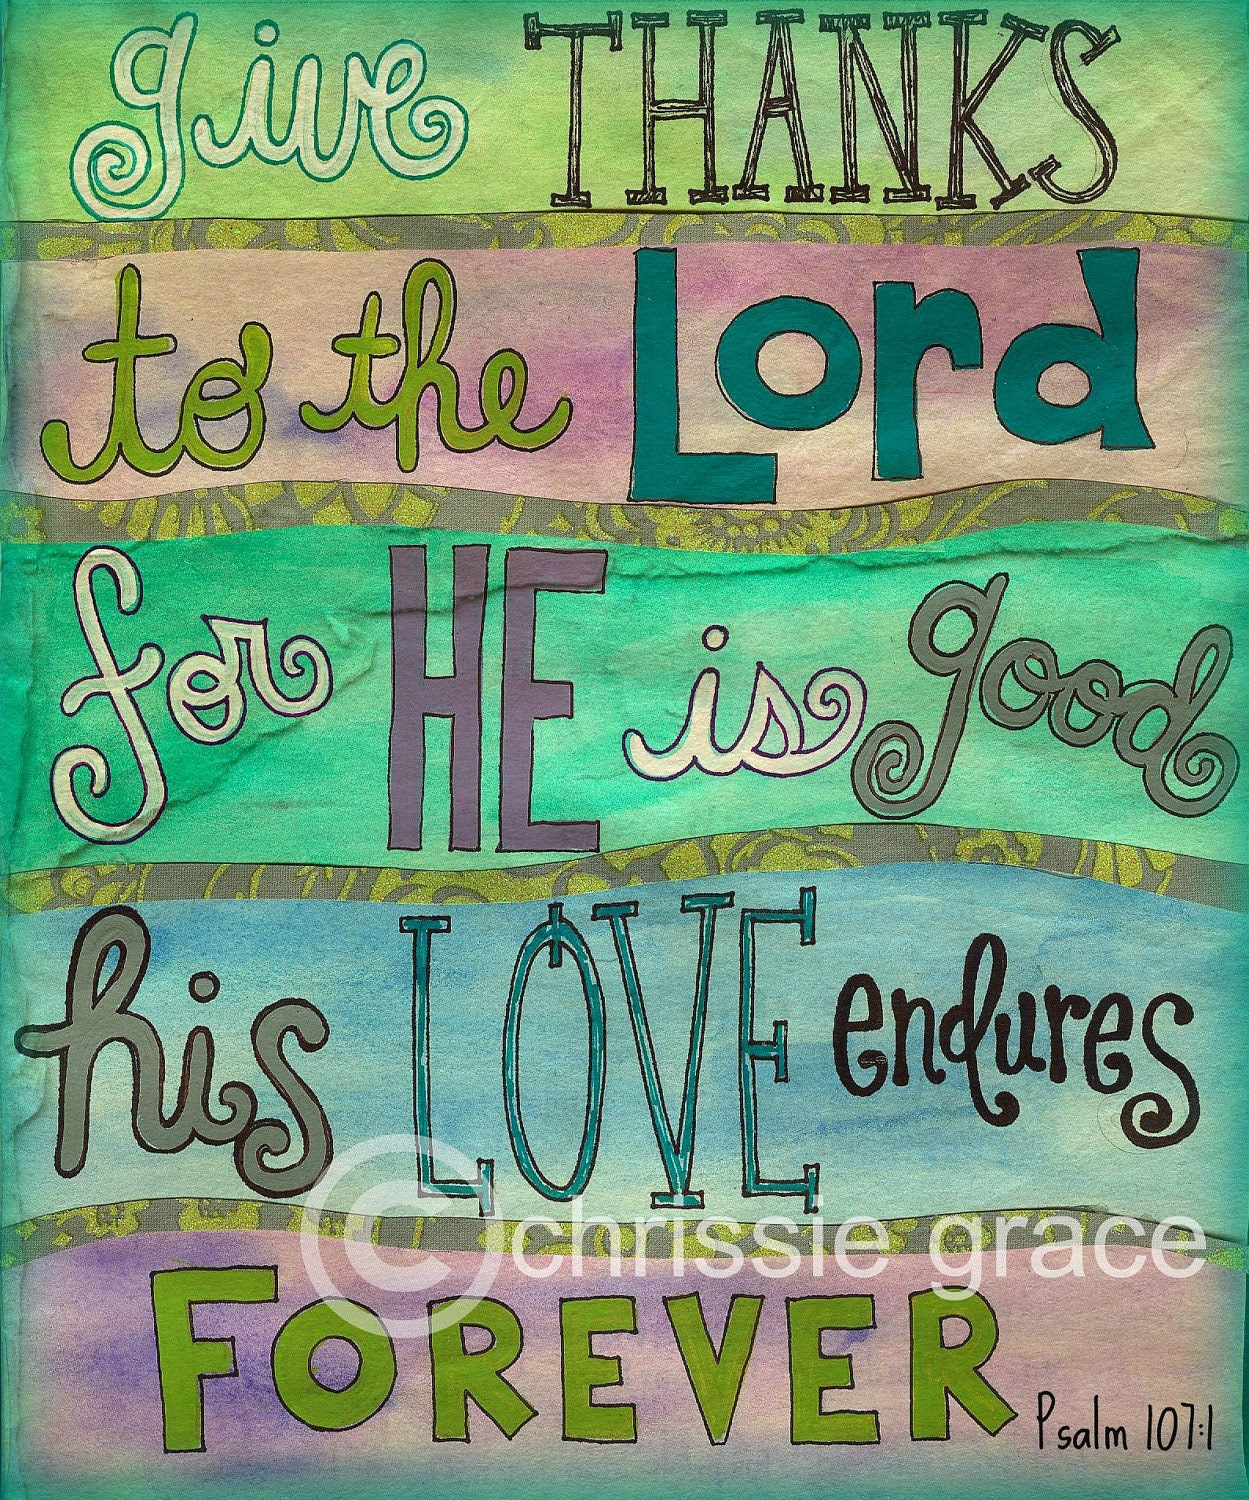 give THANKS
to the Lord
for HE is good
his LOVE endures
© chrissie grace
FOREVER
Psalm 107:1